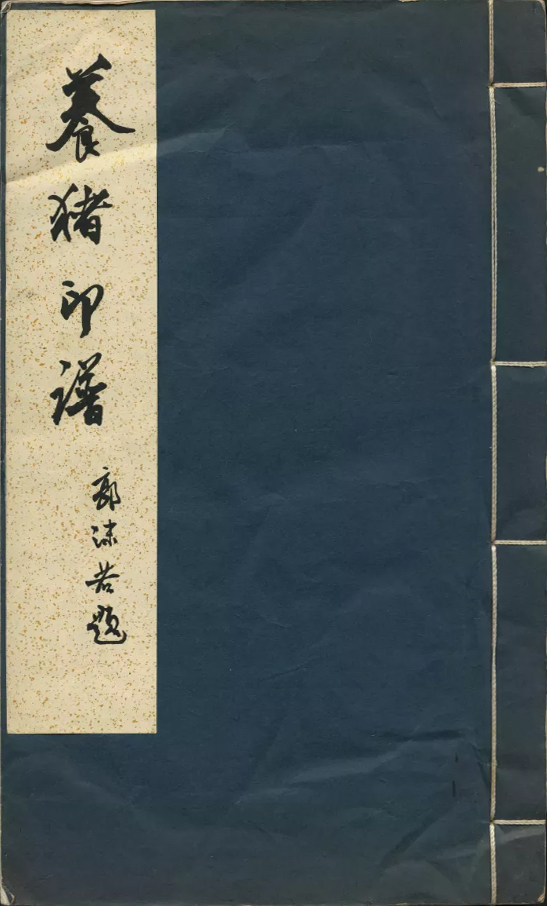 養猪印譜
郭沫若題